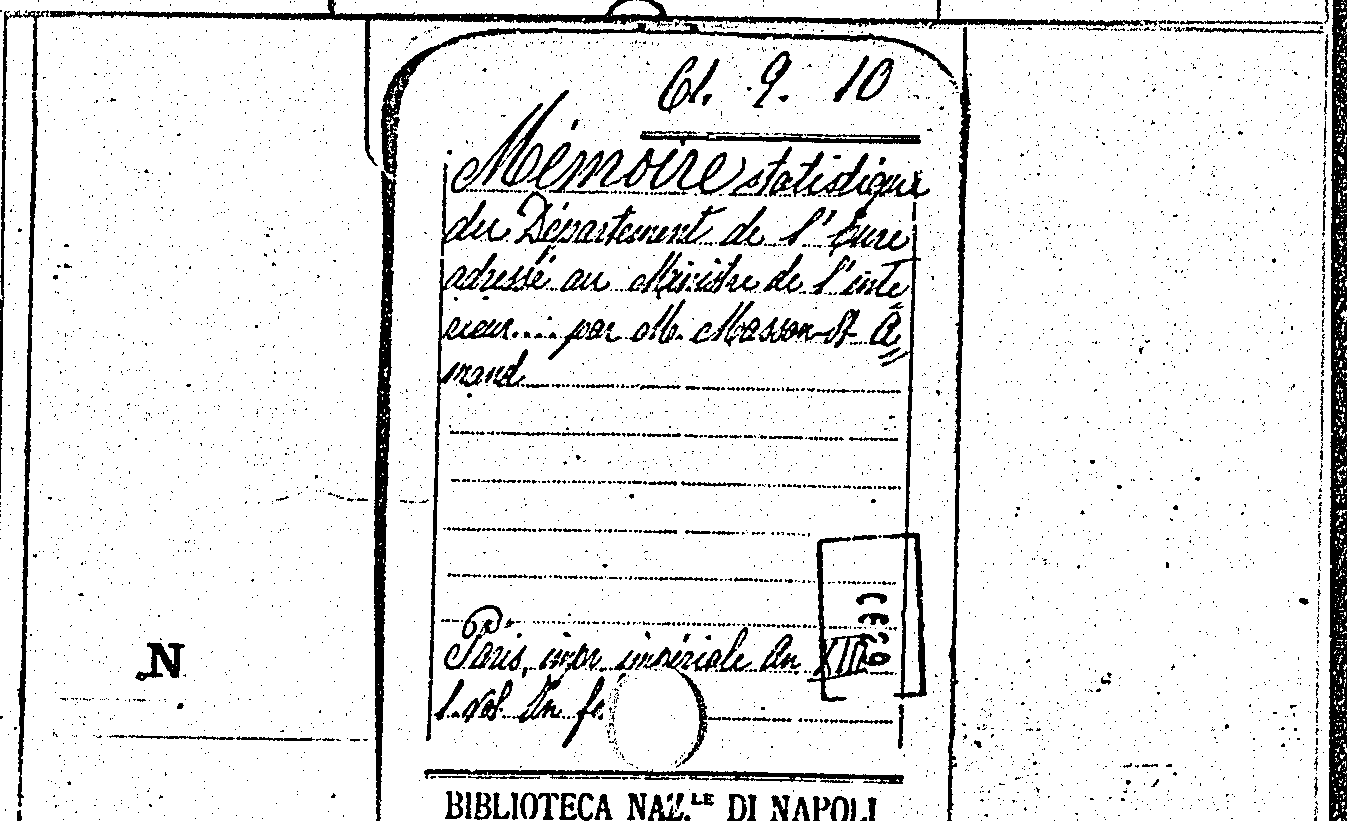 61. 9. 10
Mémoire statistique
du Département de l'Eure
adressé au Ministre de l'inté
rieur.... par M. Masson-St A
mand
Paris, impr. impériale An XIII
1. vol. In fo
N
BIBLIOTECA NAZ.LE DI NAPOLI